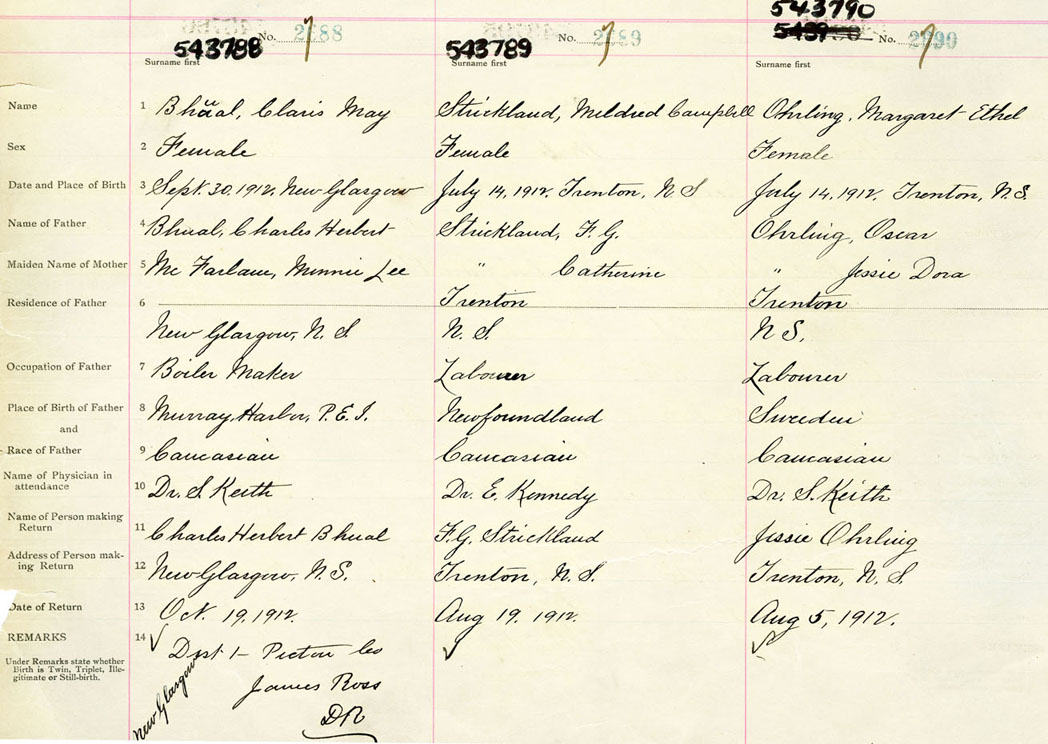 543790
543788 No. 2788 543789 No. 2789 543790 No. 2790
Surname first Surname first Surname first
Name 1 Bhüal, Claris May Strickland, Mildred Campbell Ohrling, Margaret Ethel
Sex 2 Female Female Female
Date and Place of Birth 3 Sept. 30, 1912, New Glasgow July 14, 1912. Trenton, N. S July 14, 1912. Trenton, N.S.
Name of Father 4 Bhual, Charles Herbert Strickland, F. G. Ohrling, Oscar
Maiden Name of Mother 5 Mc Farlane, Minnie Lee " Catherine " Jessie Dora
Residence of Father 6 Trenton Trenton
New Glasgow, N. S. N. S. N S.
Occupation of Father 7 Boiler Maker Labourer Labourer
Place of Birth of Father 8 Murray Harbor, P. E. I. Newfoundland Sweden
and
Race of Father 9 Caucasian Caucasian Caucasian
Name of Physician in
attendance 10 Dr. S. Keith Dr. E. Kennedy Dr. S. Keith
Name of Person making
Return 11 Charles Herbert Bhual F. G. Strickland Jessie Ohrling
Address of Person mak-
ing Return 12 New Glasgow, N. S. Trenton, N. S. Trenton, N. S.
Date of Return 13 Oct. 19, 1912. Aug 19. 1912. Aug 5, 1912.
REMARKS 14
Under Remarks state whether
Birth is Twin, Triplet, Ille-
gitimate or Still-birth.
Dist 1 - Pictou Co
James Ross
DR
New Glasgow